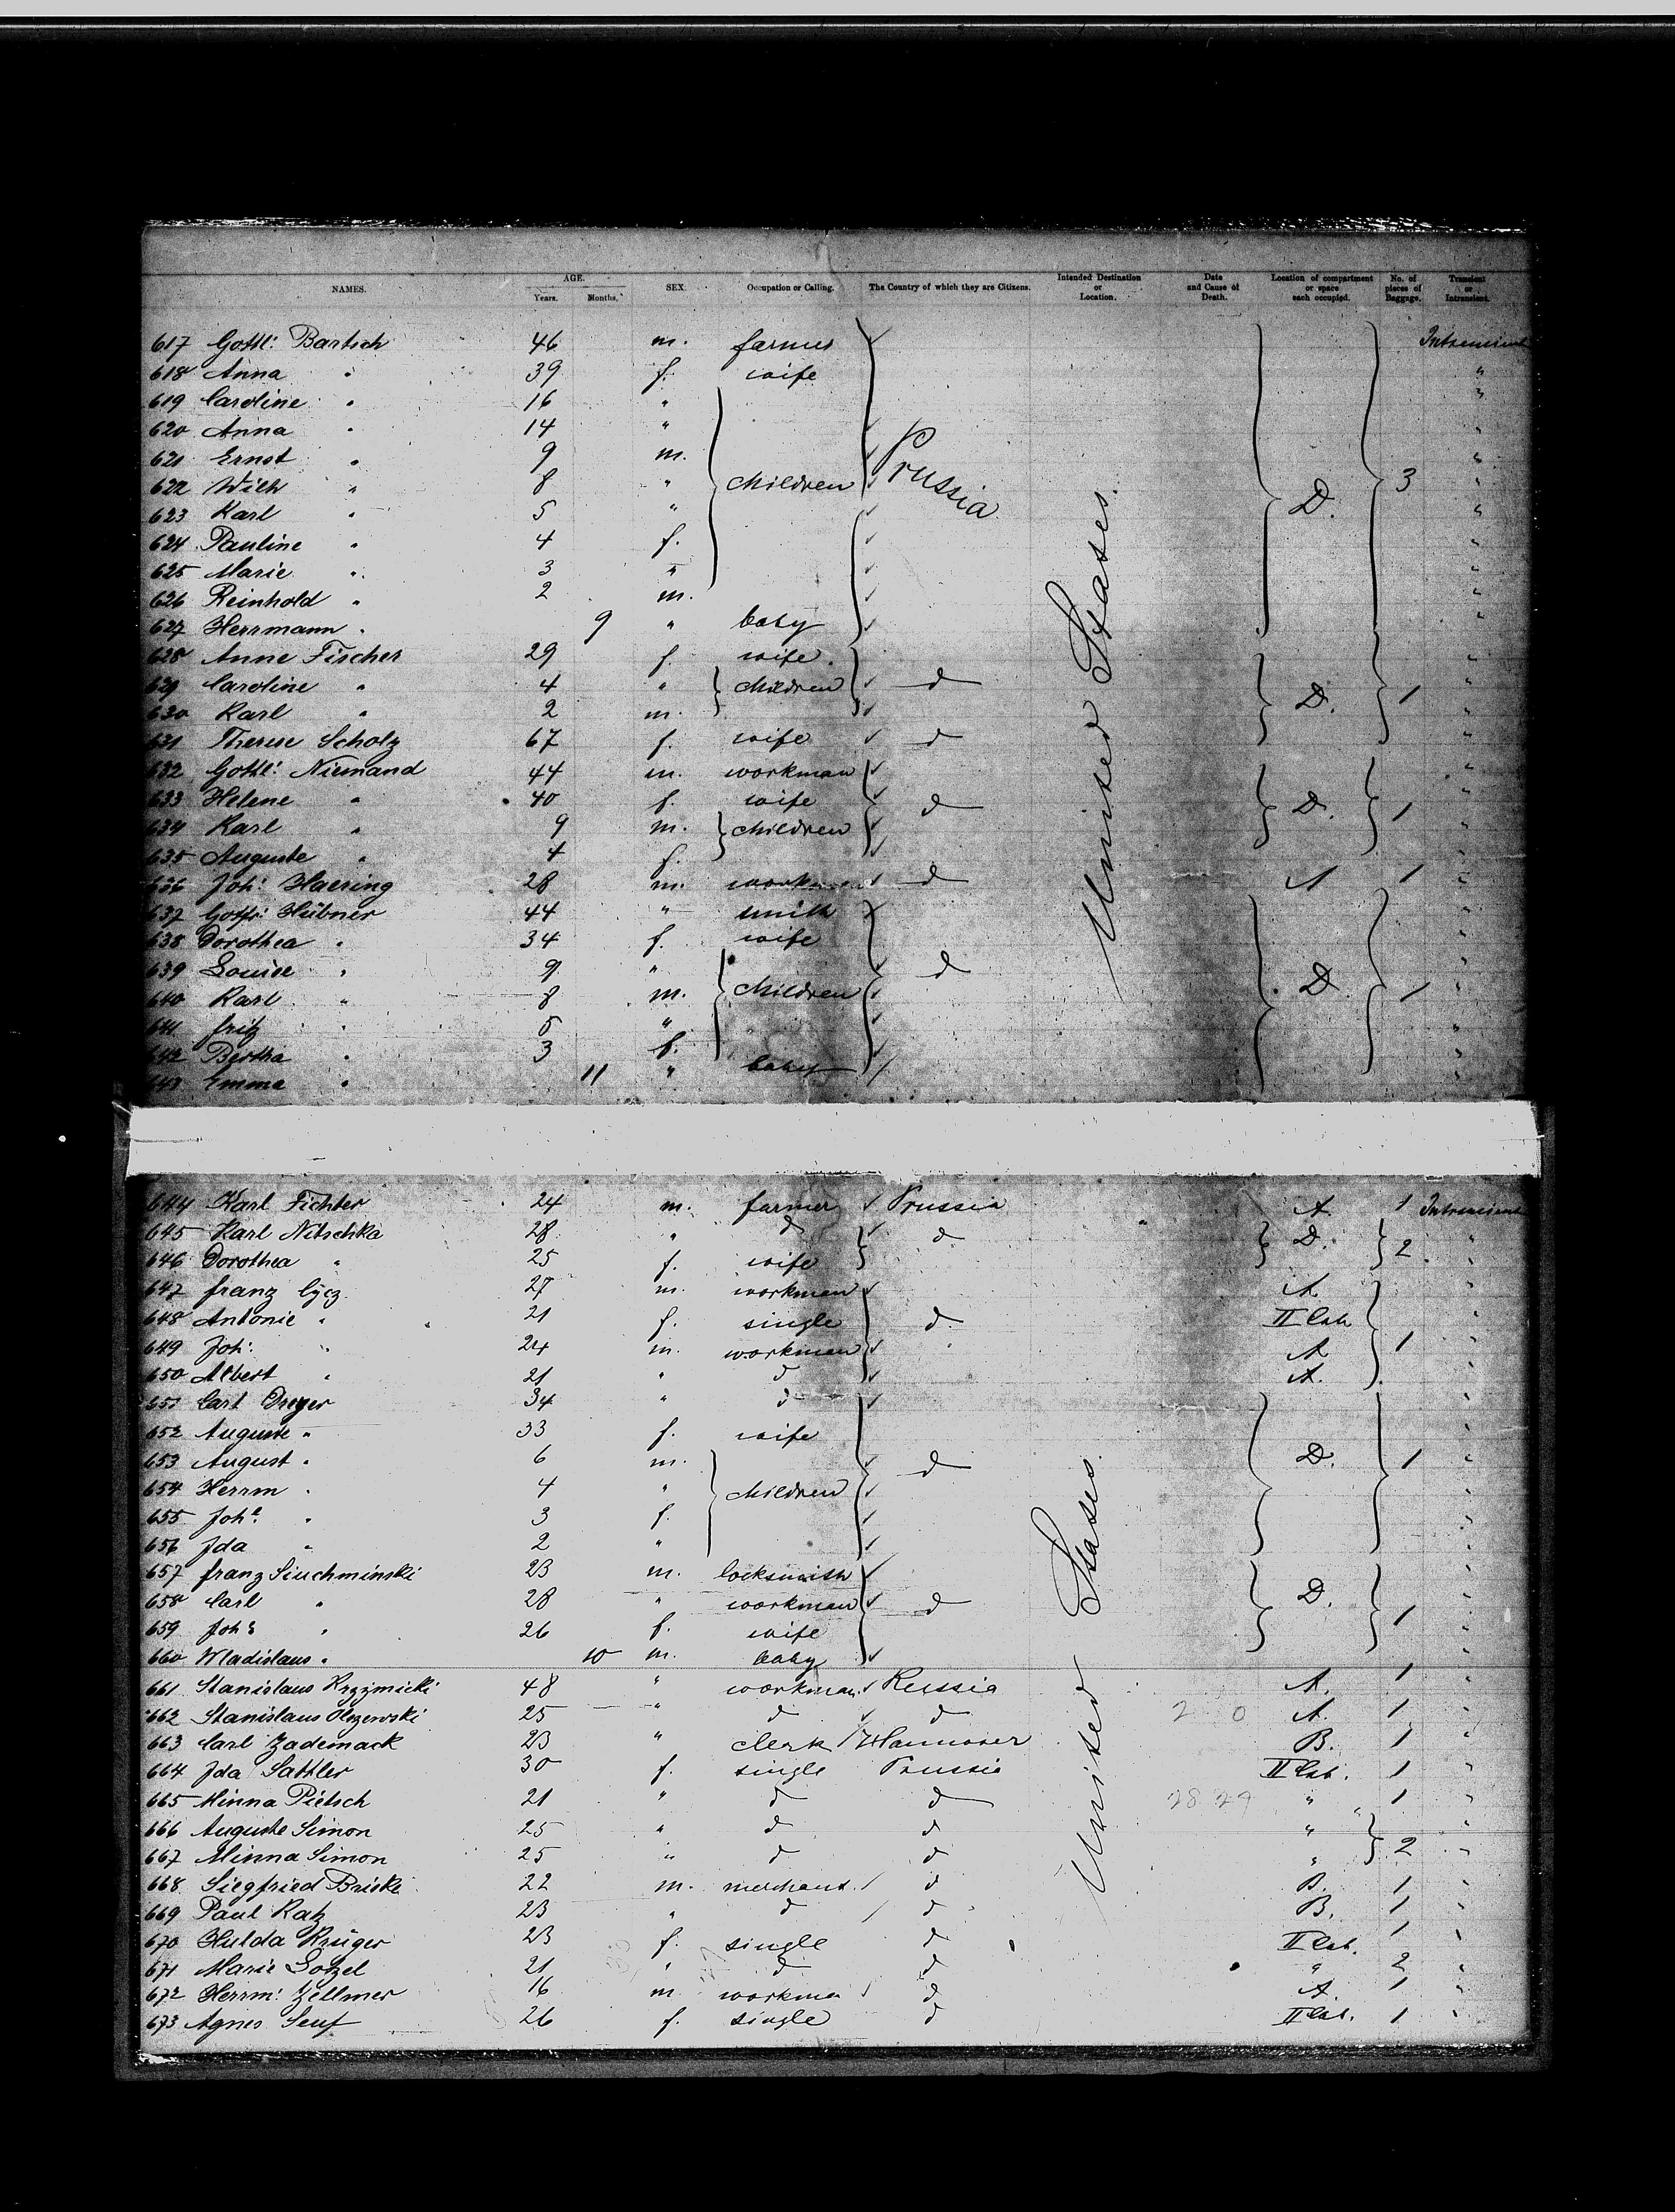 NAMES. AGE. Years. Months. SEX. Occupation or Calling. The Country of which they are Citizens. Intended Destination or Location. Date and Cause of Death. Location of compartment or space each occupied. No. of pieces of Baggage. Transient or Intransient.
617 Gottl: Bartsch 46 m. farmer Intransient
618 Anna " 39 f. wife "
619 Caroline " 16 " "
620 Anna " 14 " "
621 Ernst " 9 m. Prussia "
622 Wilh " 8 " children 3 "
623 Karl " 5 " D. "
624 Pauline " 4 f. "
625 Marie " 3 " "
626 Reinhold " 2 m. "
627 Herrmann " 9 " baby "
United States.
628 Anne Fischer 29 f. wife "
629 Caroline " 4 " children d D. 1 "
630 Karl " 2 m. "
631 Therese Scholz 67 f. wife d "
632 Gottl: Niemand 44 m. workman "
633 Helene " 40 f. wife d D. 1 "
634 Karl " 9 m. children "
635 Auguste " 4 f. "
636 Joh: Haering 28 m. workman d A 1 "
637 Gottfr: Hübner 44 " smith "
638 Dorothea " 34 f. wife "
639 Louise " 9 " d "
640 Karl " 8 m. children D. 1 "
641 fritz " 5 " "
642 Bertha " 3 f. "
643 Emma " 11 " baby "
644 Karl Fichter 24 m. farmer Prussia A. 1 Intransient
645 Karl Nitschka 28 " d d D. 2 "
646 Dorothea " 25 f. wife "
647 franz Cycz 27 m. workman A. "
648 Antonie " 21 f. single d II Cab "
649 Joh: " 24 m. workman A 1 "
650 Albert " 21 " d A. "
651 Carl Dreyer 34 " d "
652 Auguste " 33 f. wife "
653 August " 6 m. d D. 1 "
654 Herrm " 4 " children "
655 Joh<sup>e</sup>: " 3 f. "
656 Ida " 2 " "
United States.
657 franz Siuchminski 23 m. locksmith "
658 Carl " 28 " workman d D. 1 "
659 Joh: " 26 f. wife "
660 Wladislaus " 10 m. baby "
661 Stanislaus 48 " workman Russia A. 1 "
662 Stanislaus Olszewski 25 " d d A. 1 "
663 Carl Zademack 23 " clerk Hannover B. 1 "
664 Ida Sattler 30 f. single Prussia II Cab. 1 "
665 Minna Pietsch 21 " d d 28 29 " 1 "
666 Auguste Simon 25 " d d " 2 "
667 Minna Simon 25 " d d " "
668 Siegfried Briske 22 m. merchant d B. 1 "
669 Paul Katz 23 " d d B. 1 "
670 Hulda Krüger 23 f. single d II Cab. 1 "
671 Marie Lotzel 21 " d d " 2 "
672 Herrm: Zellmer 16 m. workman d A. 1 "
673 Agnes Senf 26 f. single d II Cab. 1 "